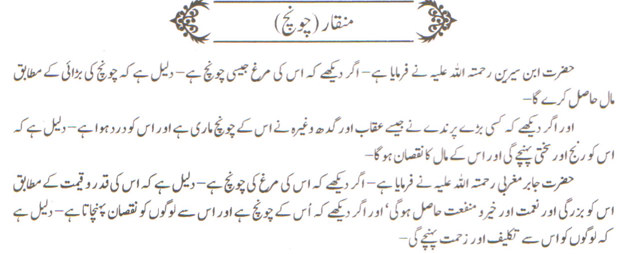 منقار (چونچ)
حضرت ابن سیرین رحمتہ اللہ علیہ نے فرمایا ہے – اگر دیکھے کہ اس کی مرغ جیسی چونچ ہے – دلیل ہے کہ چونچ کی بڑائی کے مطابق
مال حاصل کرے گا –
اور اگر دیکھے کہ کسی بڑے پرندے نے جیسے عقاب اور گدھ وغیرہ نے اس کے چونچ ماری ہے اور اس کو درد ہوا ہے – دلیل ہے کہ
اس کو رنج اور سختی پہنچے گی اور اس کے مال کا نقصان ہو گا –
حضرت جابر مغربی رحمتہ اللہ علیہ نے فرمایا ہے – اگر دیکھے کہ اس کی مرغ کی چونچ ہے – دلیل ہے کہ اس کی قدر و قیمت کے مطابق
اس کو بزرگی اور نعمت اور خیر و منفعت حاصل ہو گی' اور اگر دیکھے کہ اُس کے چونچ ہے اور اس سے لوگوں کو نقصان پہنچاتا ہے – دلیل ہے
کہ لوگوں کو اس سے تکلیف اور زحمت پہنچے گی –